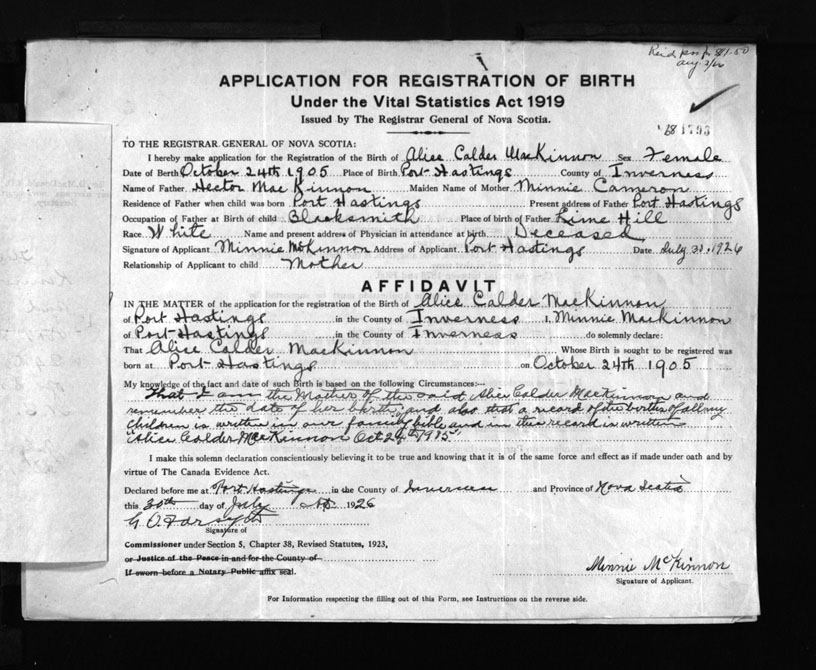 Aug 3/26
APPLICATION FOR REGISTRATION OF BIRTH
Under the Vital Statistics Act 1919
Issued by The Registrar General of Nova Scotia.
1793
TO THE REGISTRAR GENERAL OF NOVA SCOTIA:
I hereby make application for the Registration of the Birth of Alice Calder MacKinnon Sex Female
Date of Birth October 24th 1905 Place of Birth Port Hastings County of Inverness
Name of Father Hector MacKinnon Maiden Name of Mother Minnie Cameron
Residence of Father when child was born Port Hastings Present address of Father Port Hastings
Occupation of Father at Birth of child Blacksmith Place of birth of Father Lime Hill
Race White Name and present address of Physician in attendance at birth Deceased
Signature of Applicant Minnie McKinnon Address of Applicant Port Hastings Date July 31. 1926
Relationship of Applicant to child Mother
AFFIDAVIT
IN THE MATTER of the application for the registration of the Birth of Alice Calder MacKinnon
of Port Hastings in the County of Inverness I, Minnie MacKinnon
of Port Hastings in the County of Inverness do solemnly declare:
That Alice Calder MacKinnon Whose Birth is sought to be registered was
born at Port Hastings on October 24th 1905
My knowledge of the fact and date of such Birth is based on the following Circumstances:—
That I am the Mother of the said Alice Calder MacKinnon and
remember the date of her birth, and also that a record of the births of all my
children is written in our family bible and in this record is written
"Alice Calder MacKinnon Oct 24th 1905"
I make this solemn declaration conscientiously believing it to be true and knowing that it is of the same force and effect as if made under oath and by
virtue of The Canada Evidence Act.
Declared before me at Port Hastings in the County of Inverness and Province of Nova Scotia
this 30th day of July A.D. 1926
G. O. Forsyth
Signature of
Commissioner under Section 5, Chapter 38, Revised Statutes, 1923,
or Justice of the Peace in and for the County of
If sworn before a Notary Public affix seal.
Minnie McKinnon
Signature of Applicant.
For Information respecting the filling out of this Form, see Instructions on the reverse side.